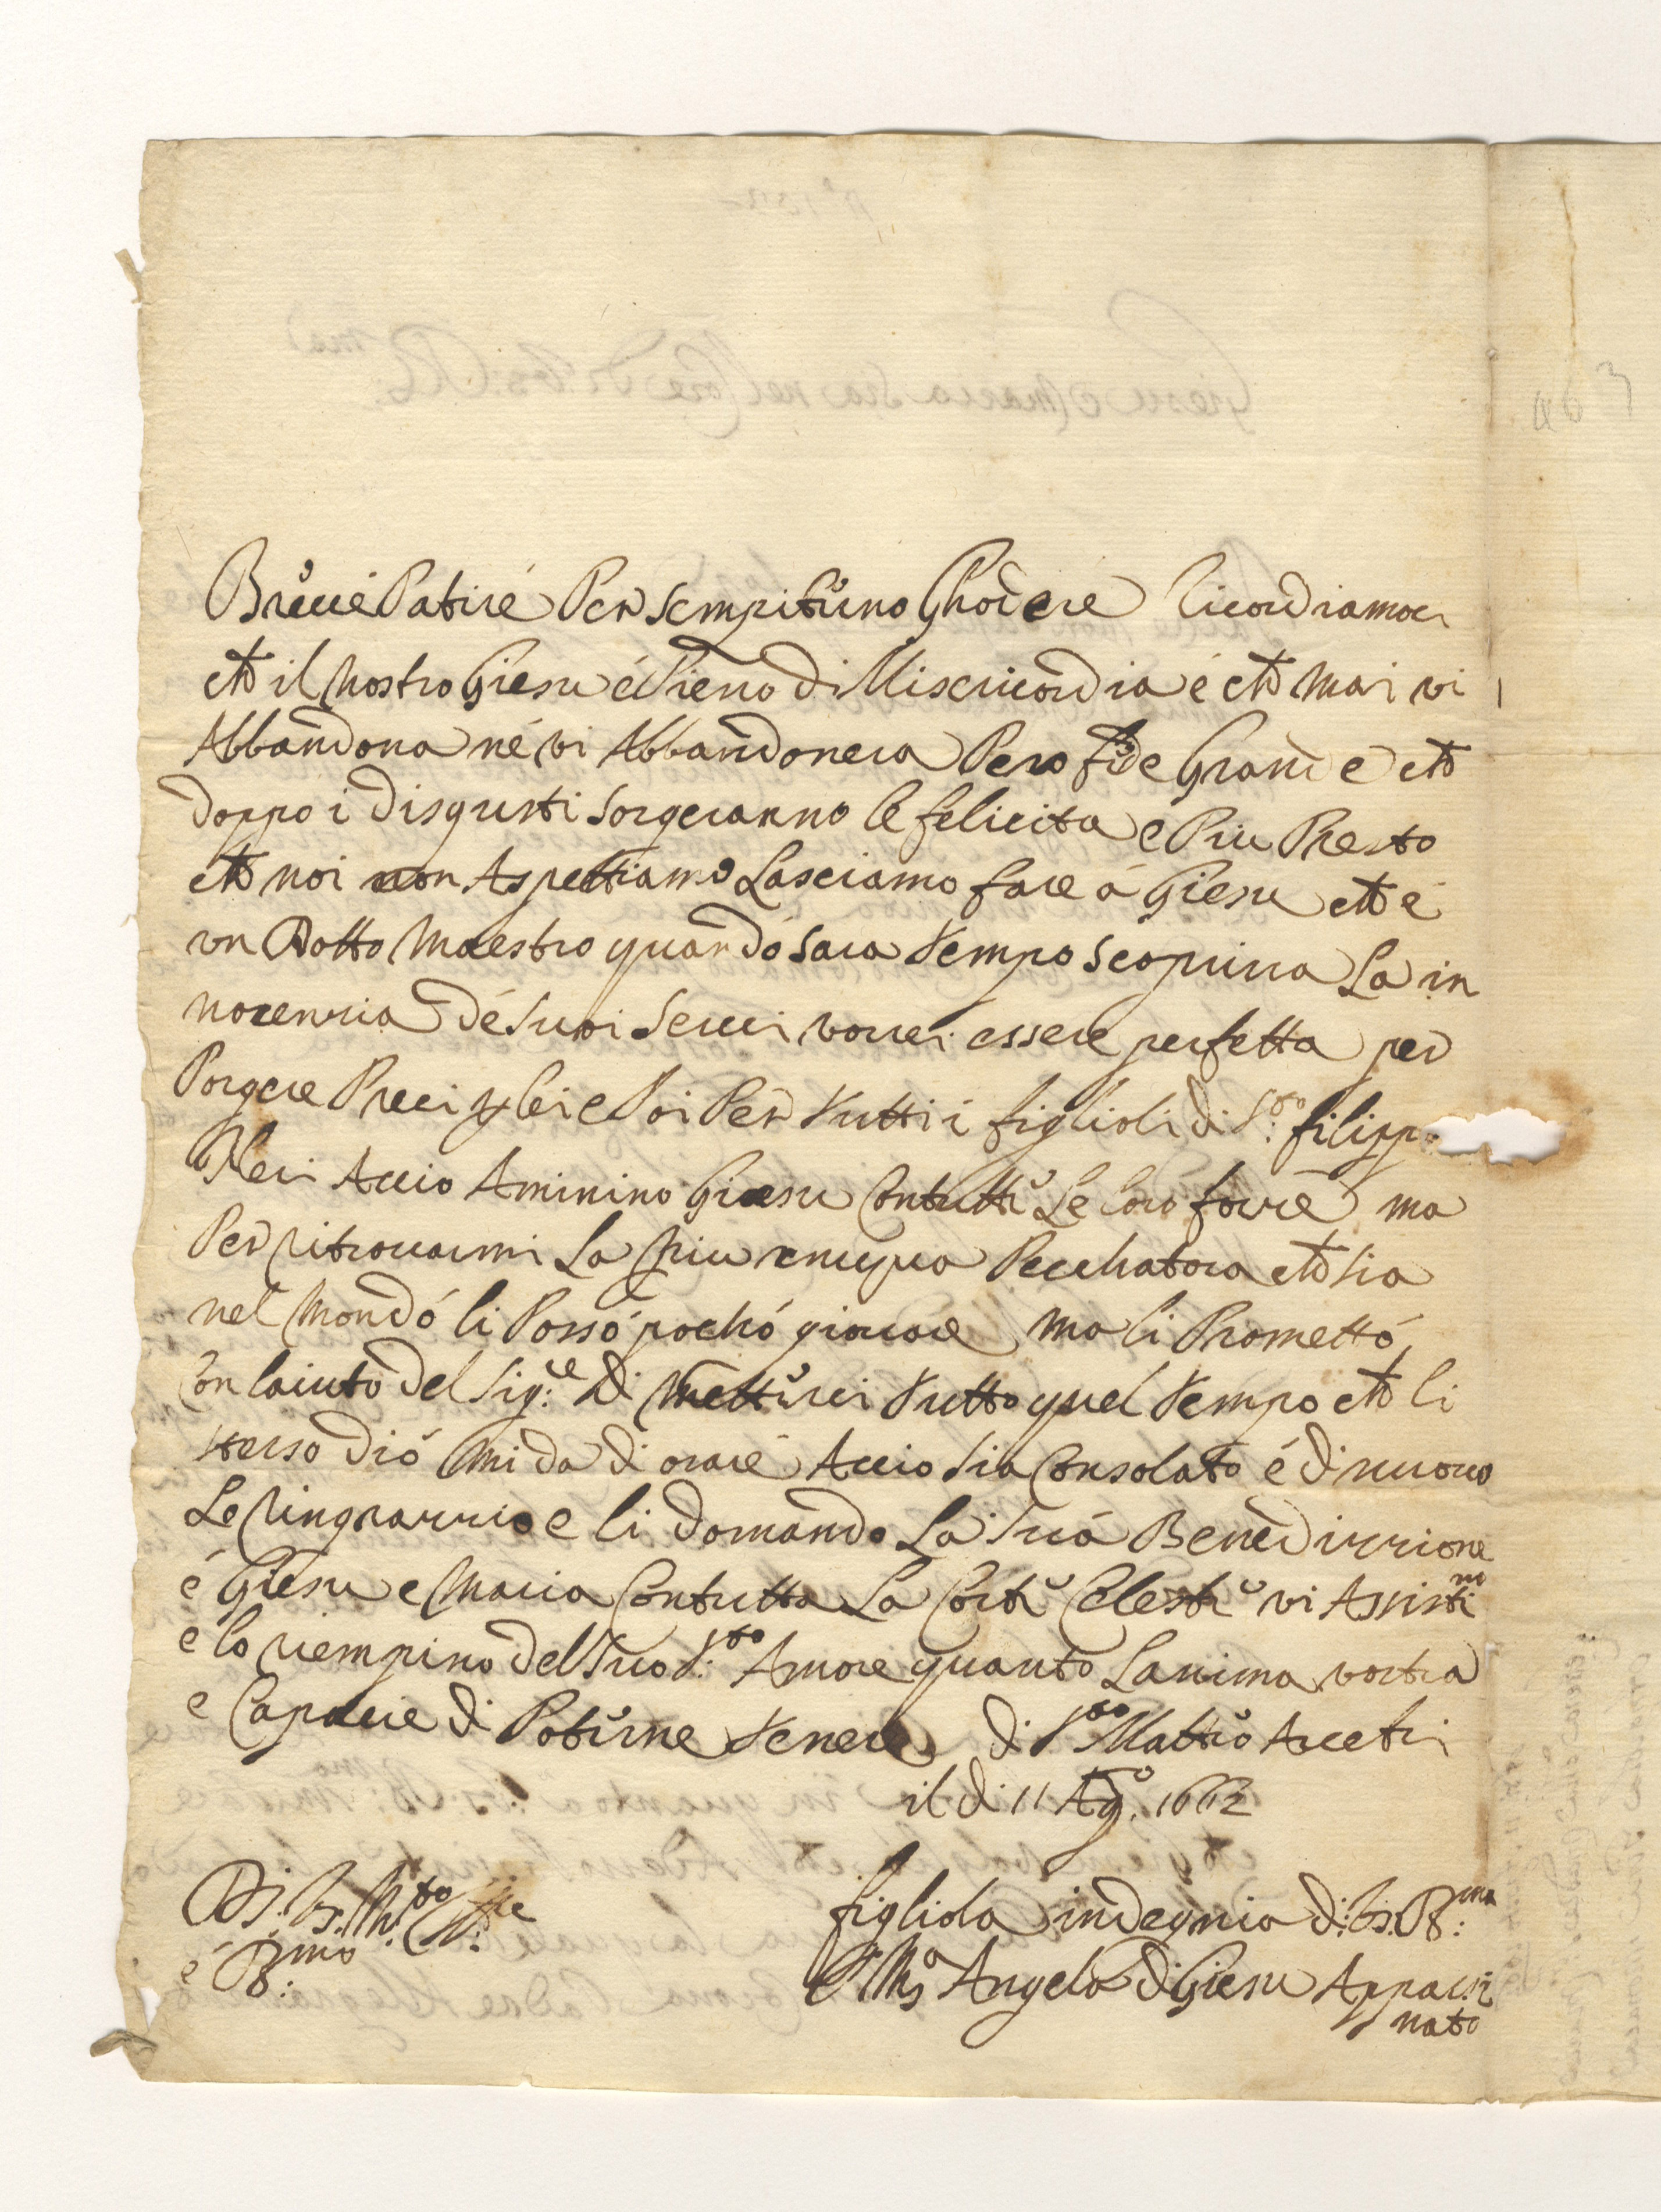 Breve Patire Per sempiterno Ghodere Ricordiamoci
che il nostro Giesu é Pieno di Misericordia é che mai vi
Abbandona né vi Abbandonera Pero fide Grande che
doppo i disgusti sorgeranno le felicita e Piu Presto
che noi non Aspettiamo Lasciamo fare á Giesu che é
un Dotto Maestro quando sara tempo scoprirra La in
nocenzia dé suoi servi vorrei essere perfetta per
Porgere Preci p lei e Poi Per tutti i figlioli di S:to filippo
Neri Accio Aminino Giesu Con tutte Le loro forze ma
Per ritrovarmi La piu eniqua Pecchatora che sia
nel Mondó li Possó pochó giovare ma li Promettó
Con laiuto del Sig:re di Metterci tutto quel tempo che li
stesso dió mi da di orare Accio sia Consolato é di nuovo
Le ringrazzio e li domando La sua Benedizzione
é Giesu e Maria Con tutta La Corte Celeste vi Assistino
e lo riempino del suo S:to Amore quanto Lanima vostra
e Capacie di Poterne tenere di S:to Matteo Arcetri
il di 11 Ag:o 1662
Di V.S. M:to
é R:mo
figliola indegnia di V.S. R:ma
S M:a Angela di Giesu Appassi
nato
463